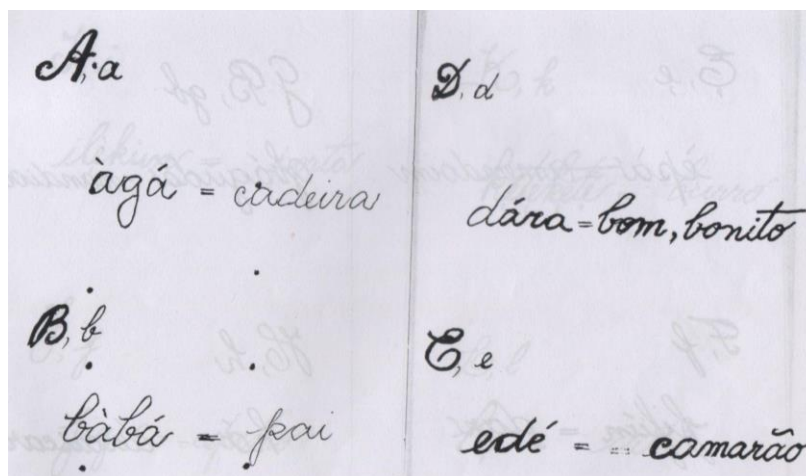 A, a
àgá = cadeira
B, b
bàbá = pai
D, d
dára = bom, bonito
E, e
edé = camarão